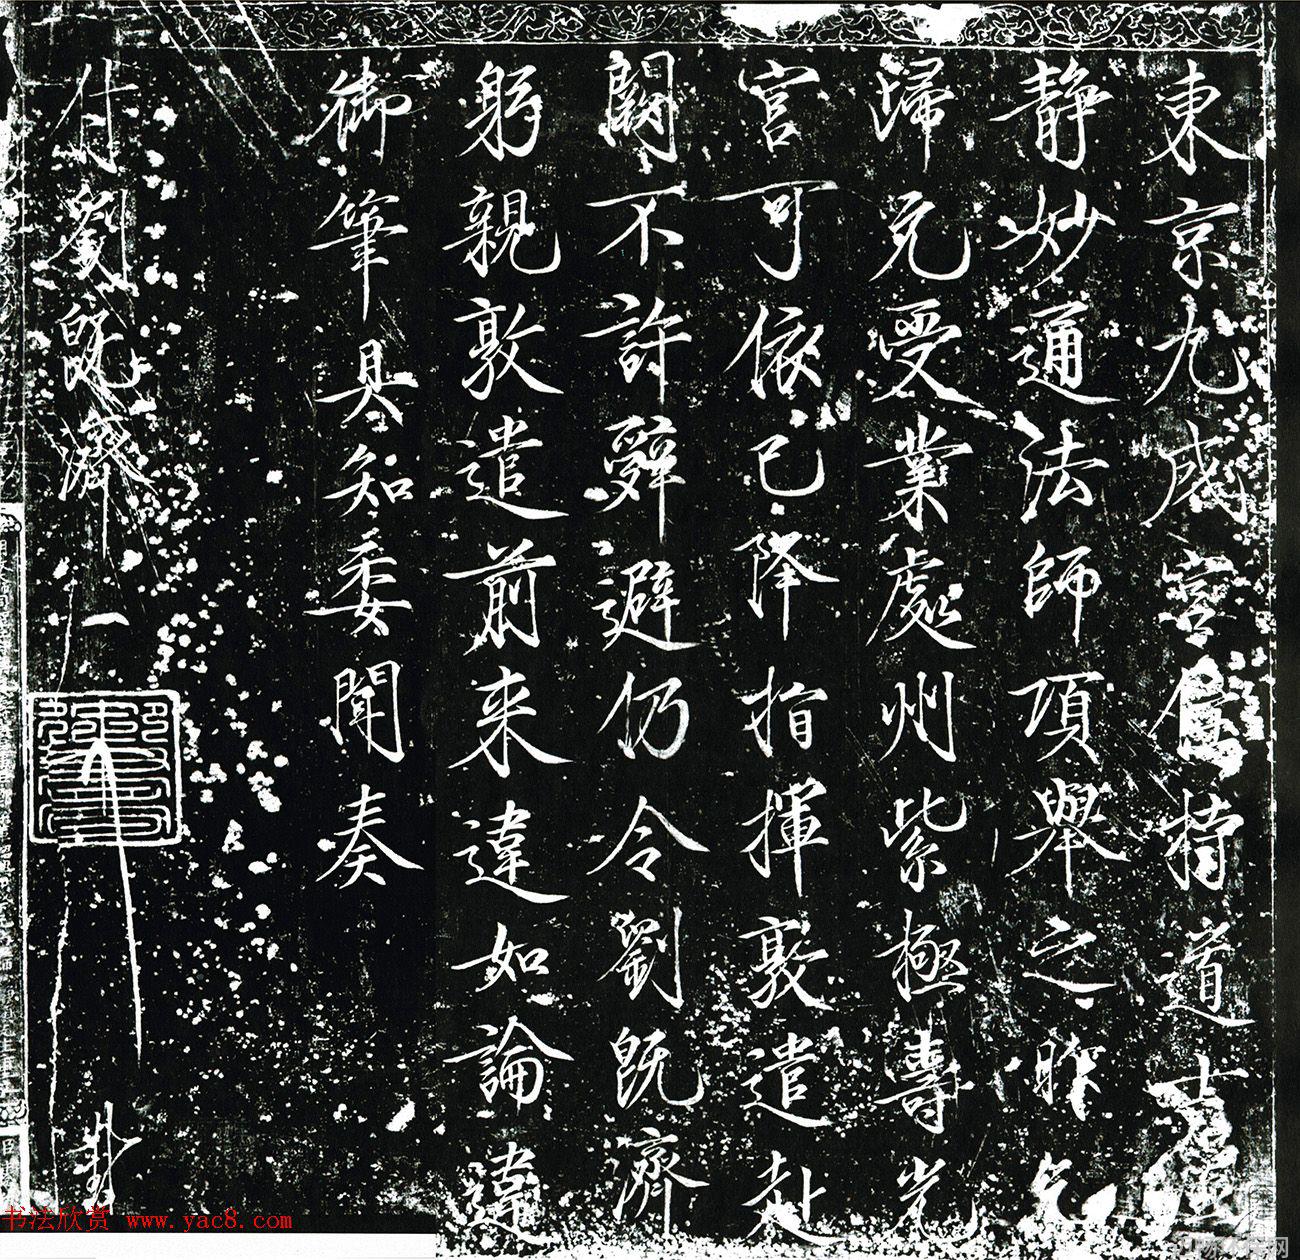 東京九成宮住持道士虛
静妙通法師項舉之昨乞
歸元受業處州紫極壽光
宮可依已降指揮敦遣赴
闕不許辭避仍令劉既濟
躬親敦遣前来違如論違
御筆具知委聞奏
付劉既濟 一
书法欣赏 www.yac8.com